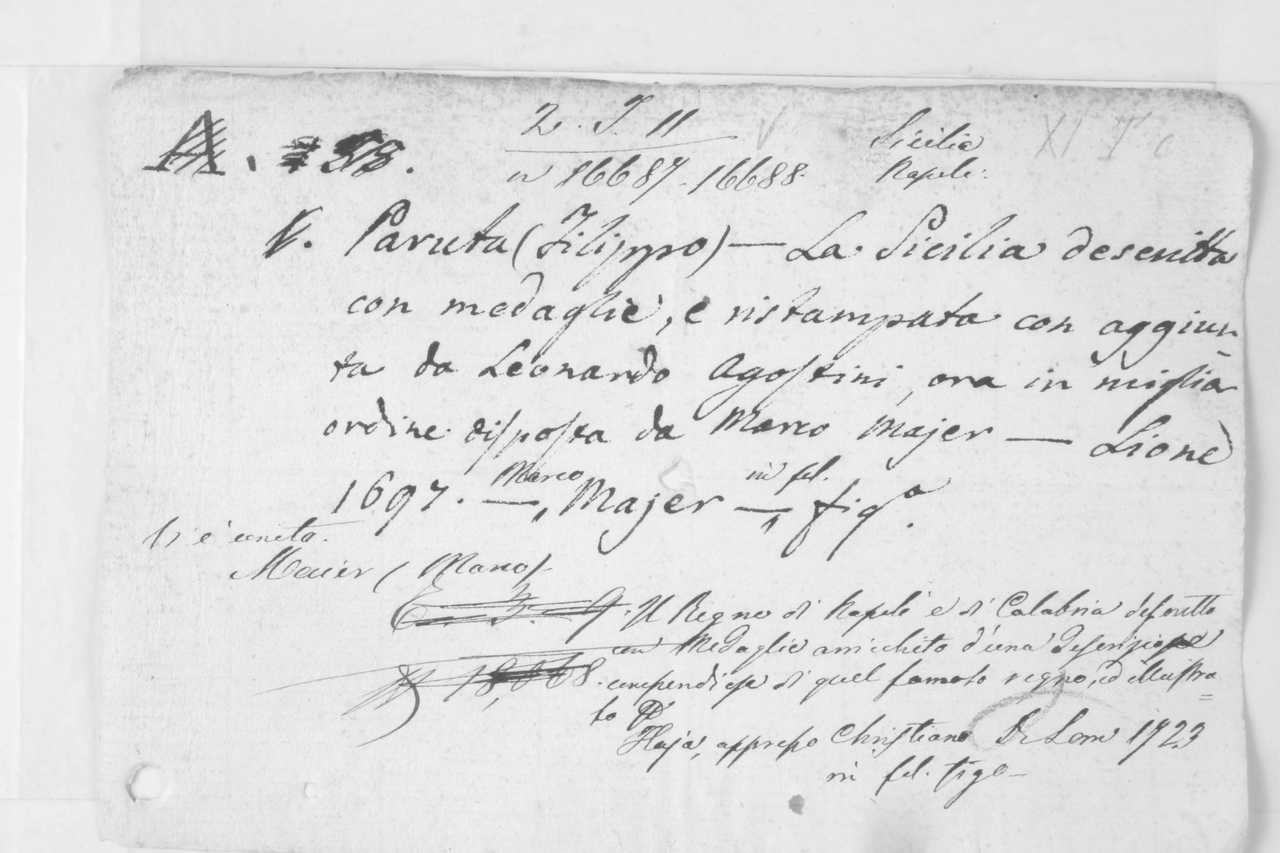 A. 58.
2. I. 11
n 16687-16688.
Sicilia
Napoli:
XI I c
V. Paruta (Filippo) — La Sicilia descritta
con medaglie, e ristampata con aggiun-
ta da Leonardo Agostini, ora in miglia
ordine disposta da Marco Majer — Lione
1697. — Marco Majer — in fol. figa.
Vi è unito.
Maier (Marco)
Il Regno di Napoli e di Calabria descritto
con Medaglie arricchito d'una Descrizione
compendiosa di quel famoso regno, ed illustra=
to
Haja, appresso Christiano De Lom 1723
in fol. fig.